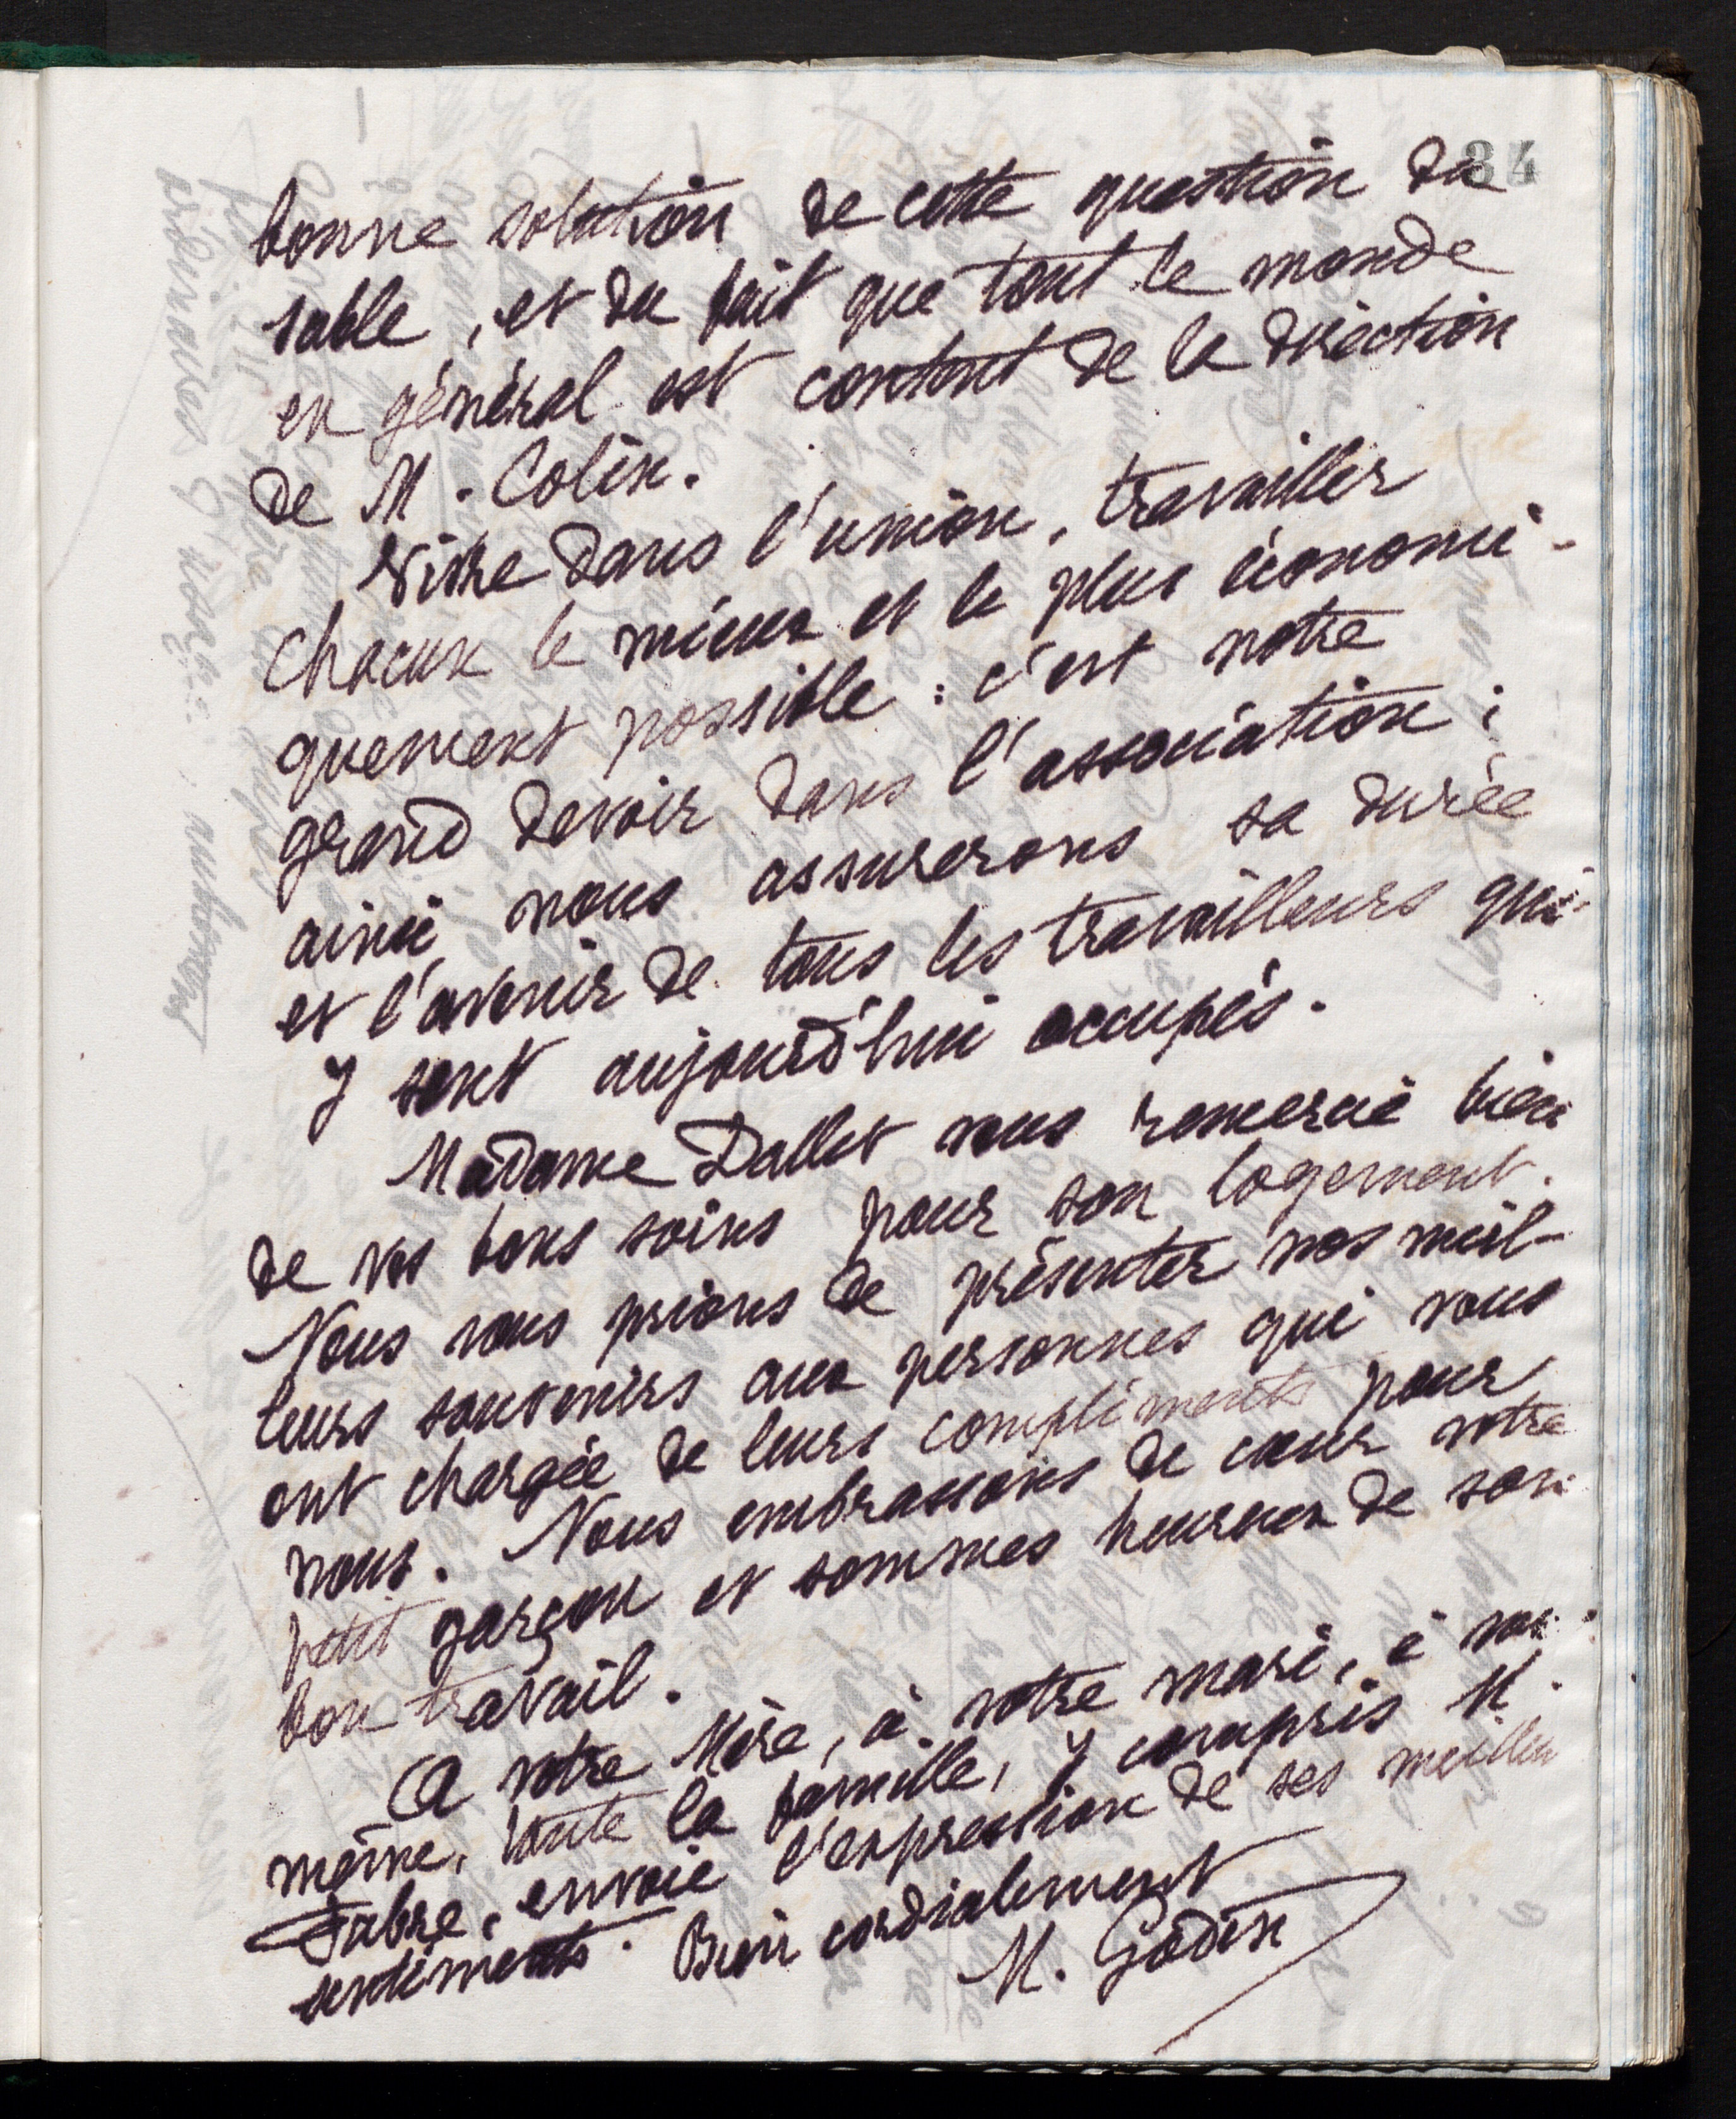 34
bonne solution de cette question du
sable, et du fait que tout le monde
en général est content de la direction
de M. Colin.
Vivre dans l'union, travailler
chacun le mieux et le plus économi-
quement possible : c'est notre
grand devoir dans l'association ;
ainsi nous assurerons sa durée
et l'avenir de tous les travailleurs qui
y sont aujourd'hui occupés.
Madame Dallet vous remercie bien
de vos bons soins pour son logement.
Nous vous prions de présenter nos meil-
leurs souvenirs aux personnes qui vous
ont chargée de leurs compliments pour
nous. Nous embrassons de cœur votre
petit garçon et sommes heureux de son
bon travail.
A votre Mère, à votre mari, à vous
même, toute la famille, y compris M.
Fabre, envoie l'expression de ses meilleu
sentiments. Bien cordialement
M. Godin